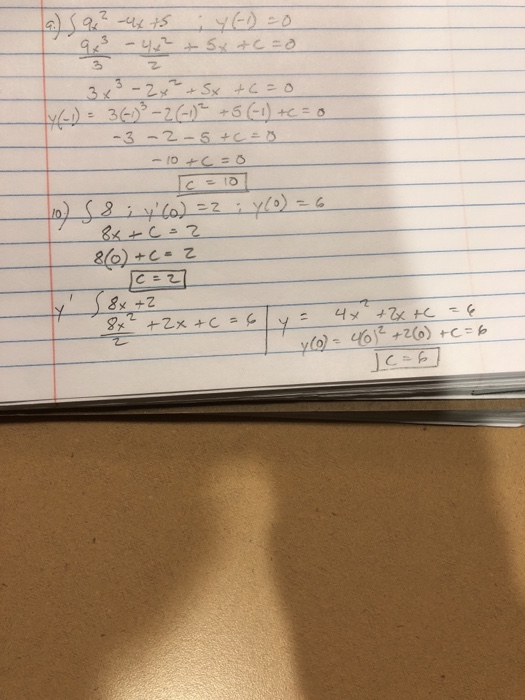 9.) ∫ 9x² -4x +5 ; y(-1) = 0
9x³/3 - 4x²/2 + 5x + C = 0
3x³ - 2x² + 5x + C = 0
y(-1) = 3(-1)³ - 2(-1)² + 5(-1) + C = 0
-3 - 2 - 5 + C = 0
-10 + C = 0
C = 10
10) ∫ 8 ; y'(0) = 2 ; y(0) = 6
8x + C = 2
8(0) + C = 2
C = 2
y' ∫ 8x + 2
8x²/2 + 2x + C = 6
y = 4x² + 2x + C = 6
y(0) = 4(0)² + 2(0) + C = 6
C = 6